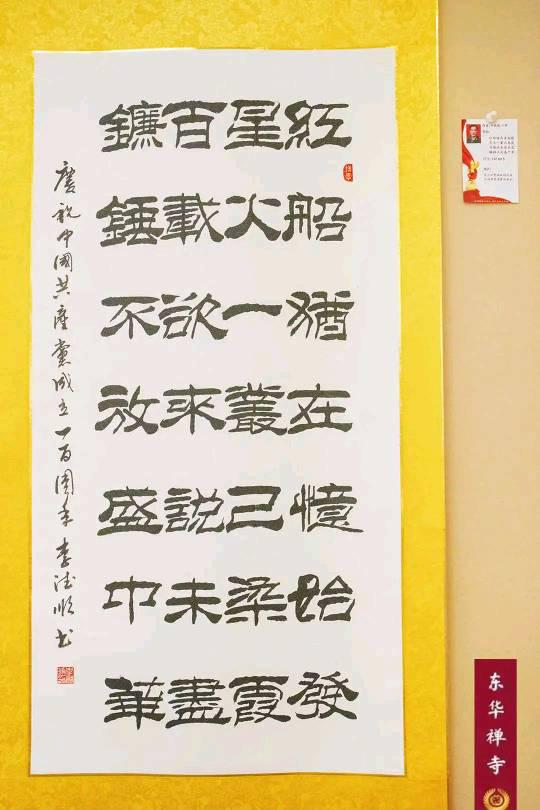 紅船猶在憶始發
星火一叢已染霞
百載欲來說未盡
鐮錘不放盛中華
慶祝中國共產黨成立一百周年 李德順書
东华禅寺